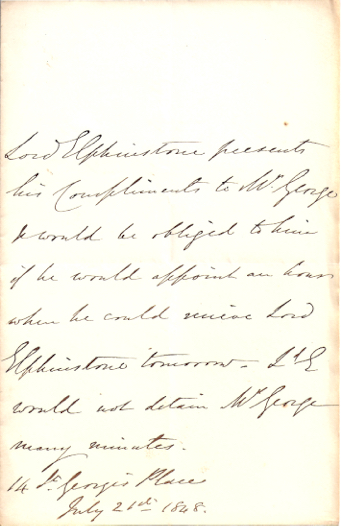 Lord Elphinstone presents
his Compliments to Mr. George
& would be obliged to him
if he would appoint an hour
when he could receive Lord
Elphinstone tomorrow - Ld E
would not detain Mr George
many minutes.
14 St. George's Place
July 21st 1848.